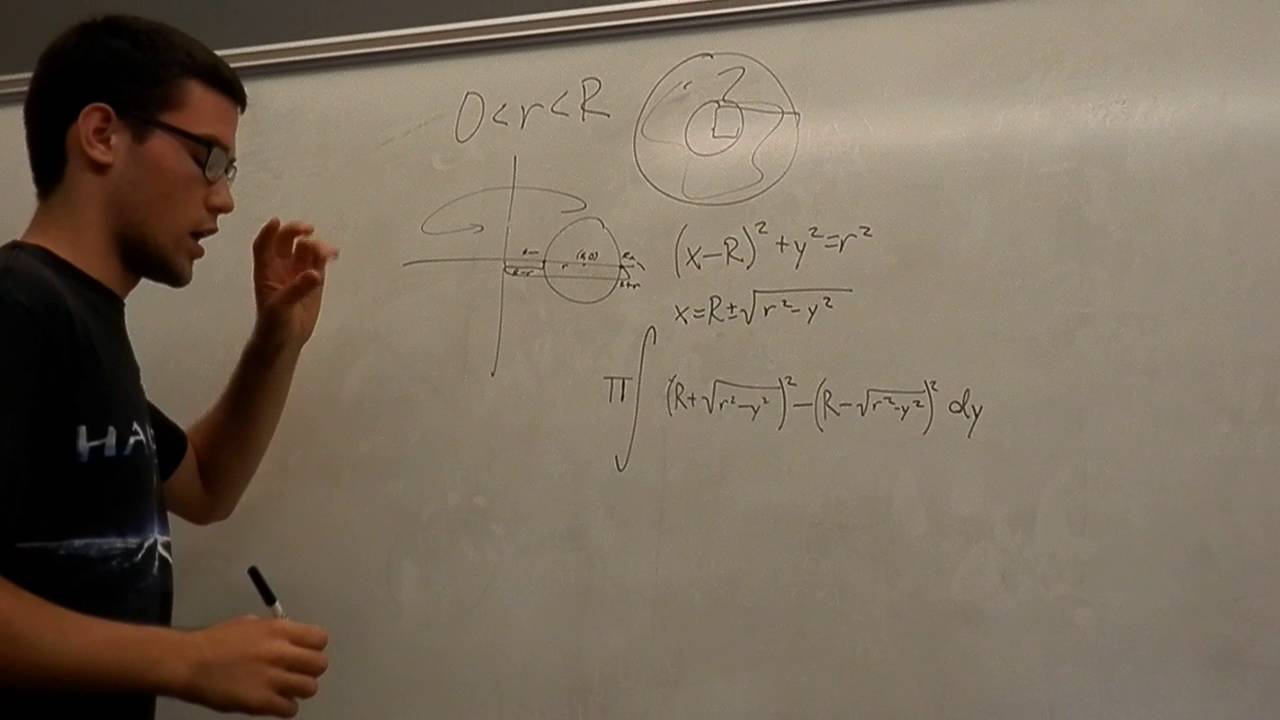 0<r<R
(R,0)
r
R-r
R+r
(x-R)²+y²=r²
x=R±√(r²-y²)
π∫(R+√(r²-y²))²-(R-√(r²-y²))² dy
HA